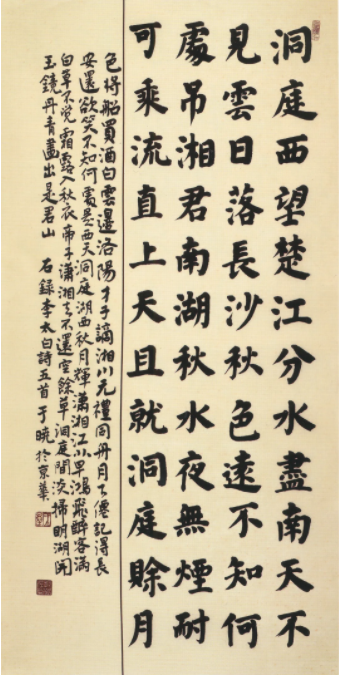 洞庭西望楚江分水盡南天不
見雲日落長沙秋色遠不知何
處吊湘君南湖秋水夜無煙耐
可乘流直上天且就洞庭賒月
色将船買酒白雲邊洛陽才子謫湘川元禮同舟月下僊記得長
安還欲笑不知何處是西天洞庭湖西秋月輝瀟湘江北早鴻飛醉客滿
白苧不覺霜露入秋衣帝子瀟湘去不還空餘草洞庭間淡掃明湖開
玉鏡丹青畫出是君山 右錄李太白詩五首 于曉於京華